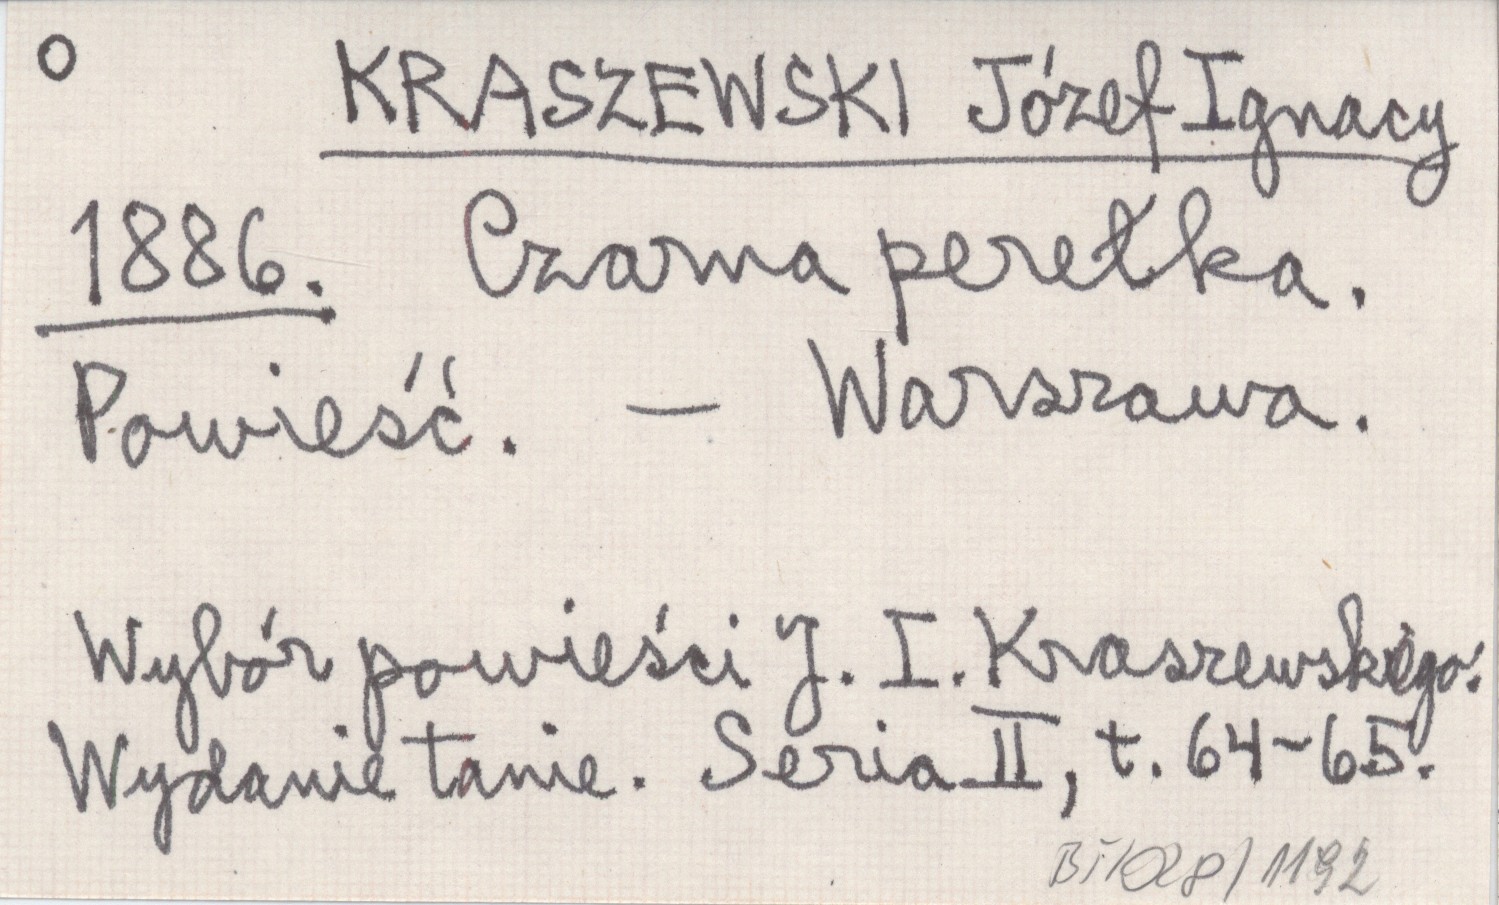 O KRASZEWSKI Józef Ignacy
1886. Czarna perełka.
Powieść. — Warszawa.
Wybór powieści J. I. Kraszewskiego.
Wydanie tanie. Seria II, t. 64-65.